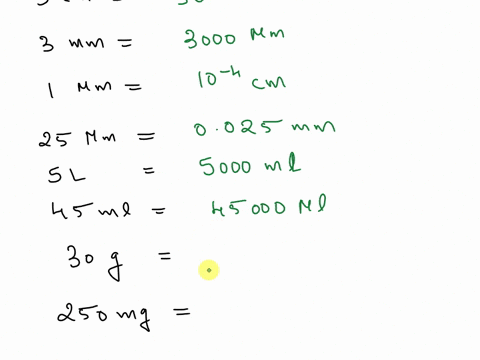 3 mm = 3000 Mm
1 Mm = 10⁻⁴ cm
25 Mm = 0.025 mm
5L = 5000 ml
45 ml = 45000 Ml
30 g =
250 mg =